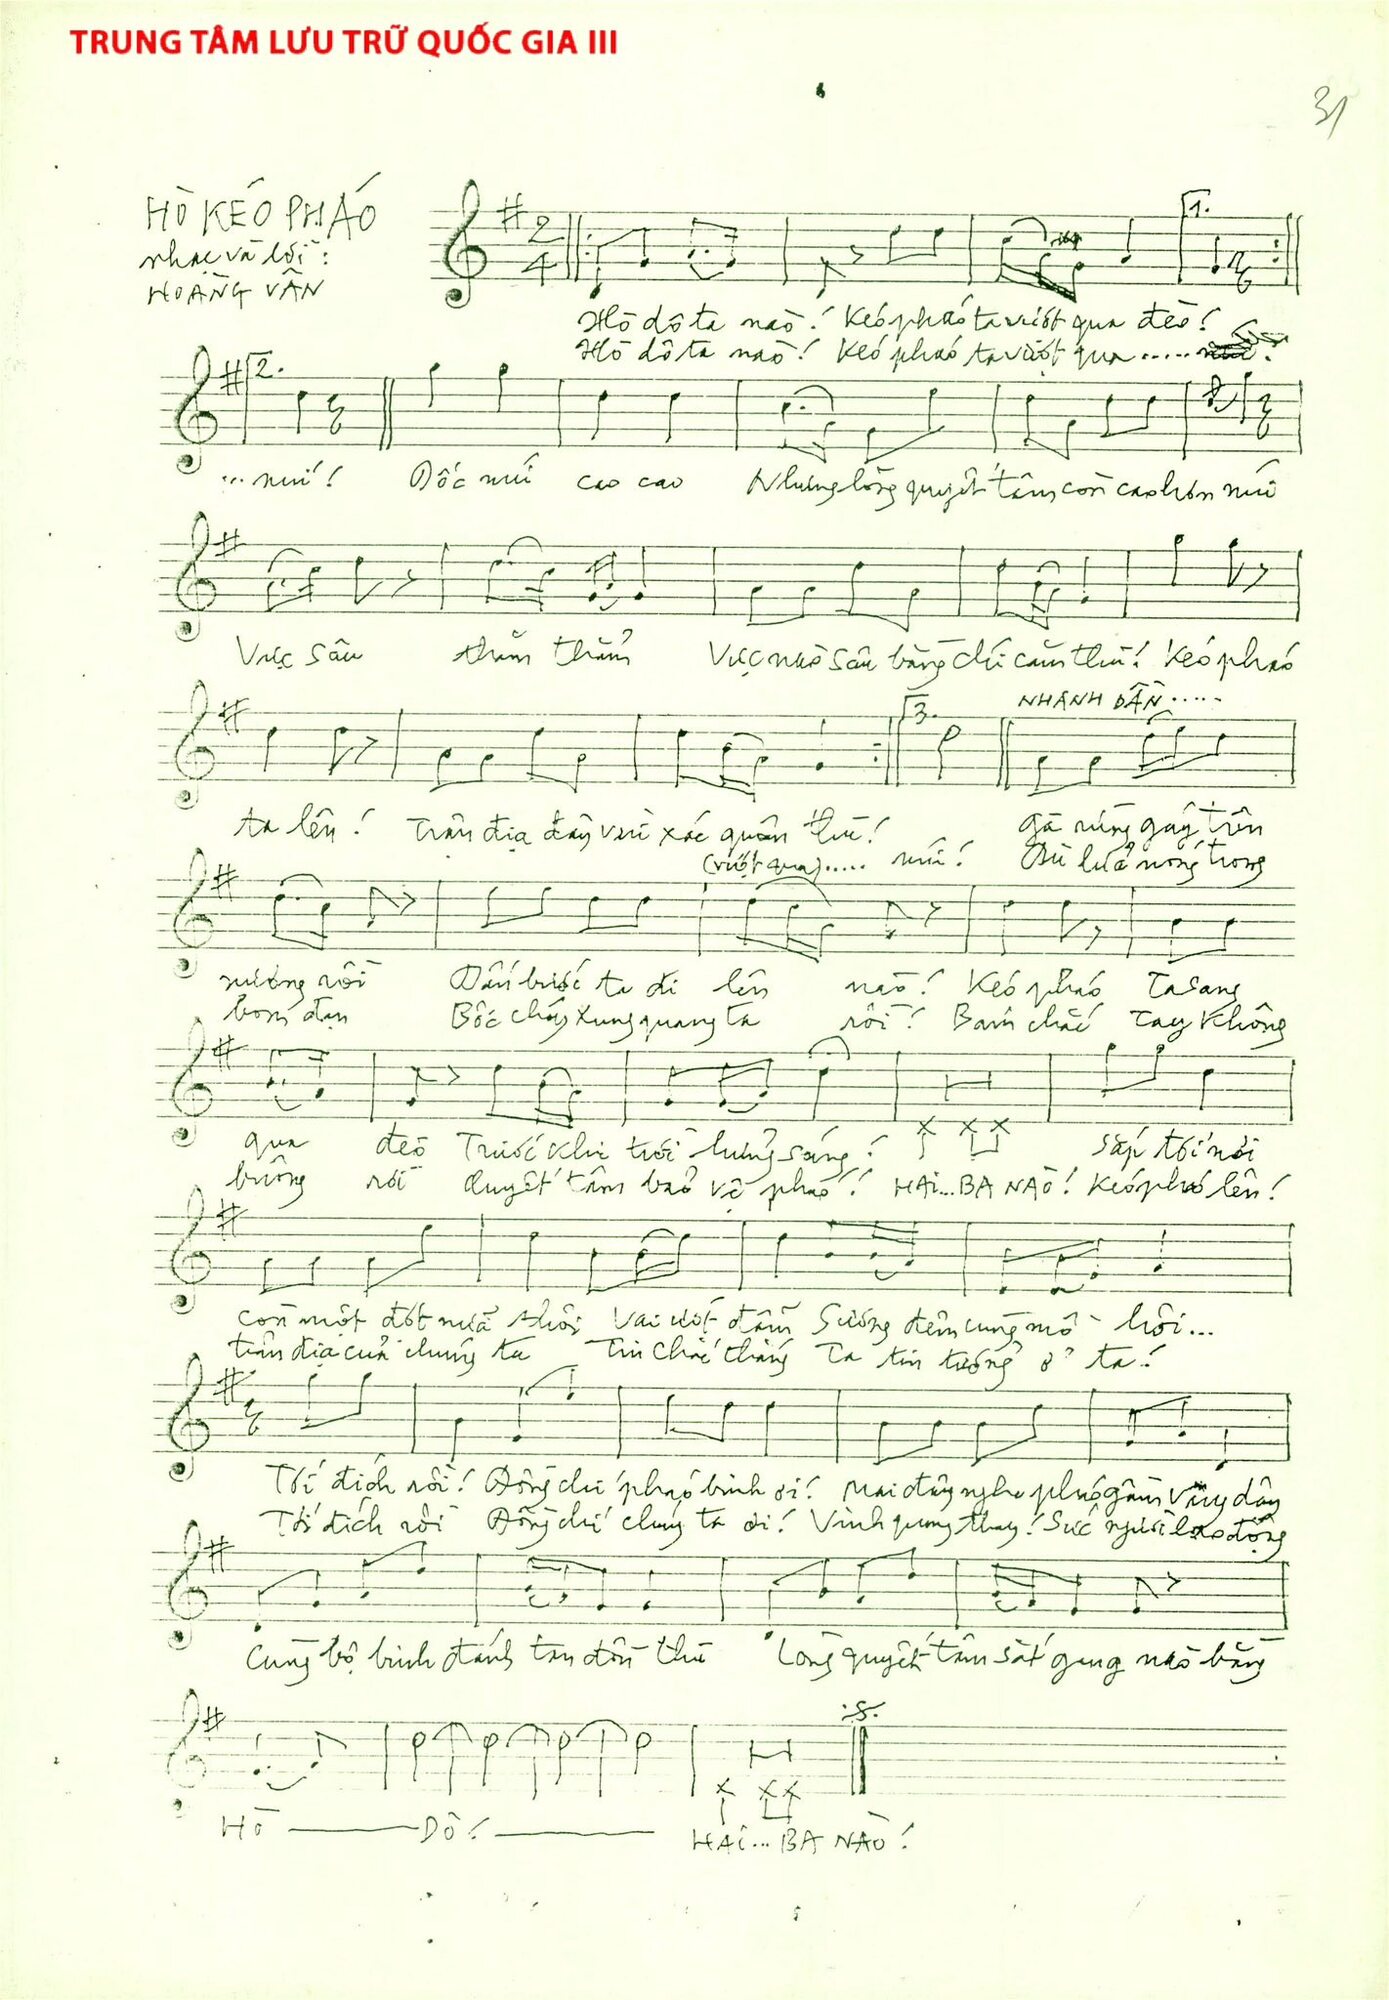 TRUNG TÂM LƯU TRỮ QUỐC GIA III
31
HÒ KÉO PHÁO
nhạc và lời:
HOÀNG VÂN
2
4
1.
Hò dô ta nào! Kéo pháo ta vượt qua đèo!
Hò dô ta nào! Kéo pháo ta vượt qua .....
2.
...núi! Dốc núi cao cao Nhưng lòng quyết tâm còn cao hơn núi
Vực sâu thăm thẳm Vực nào sâu bằng chí căm thù! Kéo pháo
NHANH DẦN .....
3.
ta lên! Trận địa đây vùi xác quân thù! Gà rừng gáy trên
(vượt qua)..... núi! Dù lửa nóng trong
nương rồi Dấn bước ta đi lên nào! Kéo pháo ta sang
bom đạn Bốc cháy xung quanh ta rồi! Bám chắc tay không
qua đèo Trước khi trời hửng sáng! Sắp tới nơi
buông rời Quyết tâm bảo vệ pháo! HAI...BA NÀO! Kéo pháo lên!
còn một đợt nữa thôi Vai ướt đẫm Sương đêm cùng mồ hôi...
trận địa của chúng ta Tin chắc thắng Ta tin tưởng ở ta!
Tới đích rồi! Đồng chí pháo binh ơi! Mai đây nghe pháo gầm vang dậy
Tới đích rồi Đồng chí chúng ta ơi! Vinh quang thay! Sức người lao động
Cùng bộ binh đánh tan đồn thù Lòng quyết tâm sắt gang nào bằng
HÒ DÔ! HAI...BA NÀO!